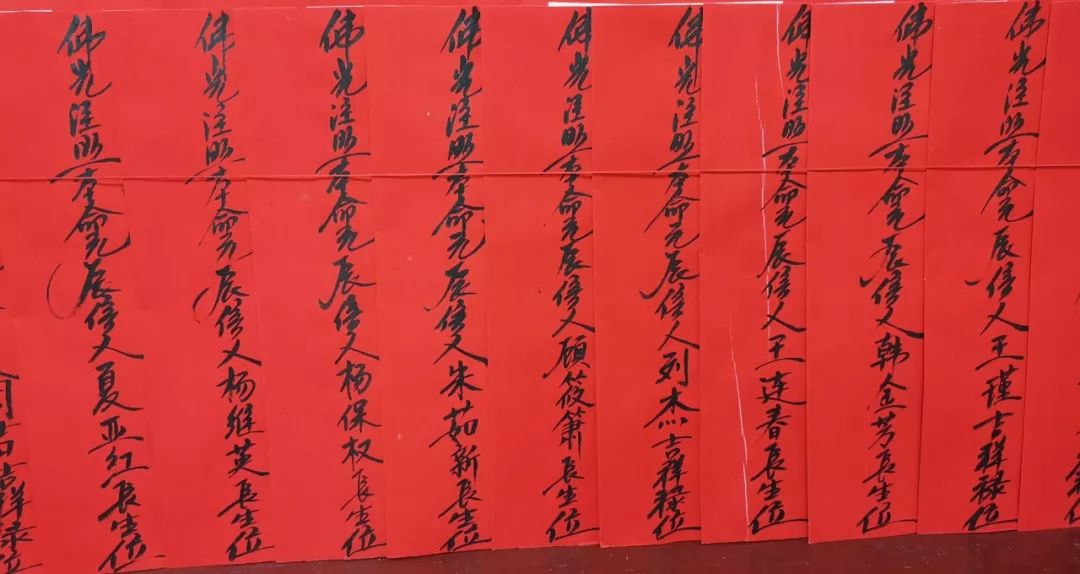 佛光注照本命元辰信人王瑾吉祥禄位
佛光注照本命元辰信人韩金芳长生位
佛光注照本命元辰信人王连春长生位
佛光注照本命元辰信人列杰吉祥禄位
佛光注照本命元辰信人顾筱箫长生位
佛光注照本命元辰信人朱茹新长生位
佛光注照本命元辰信人杨保权长生位
佛光注照本命元辰信人杨继英长生位
佛光注照本命元辰信人夏亚红长生位
吉祥禄位